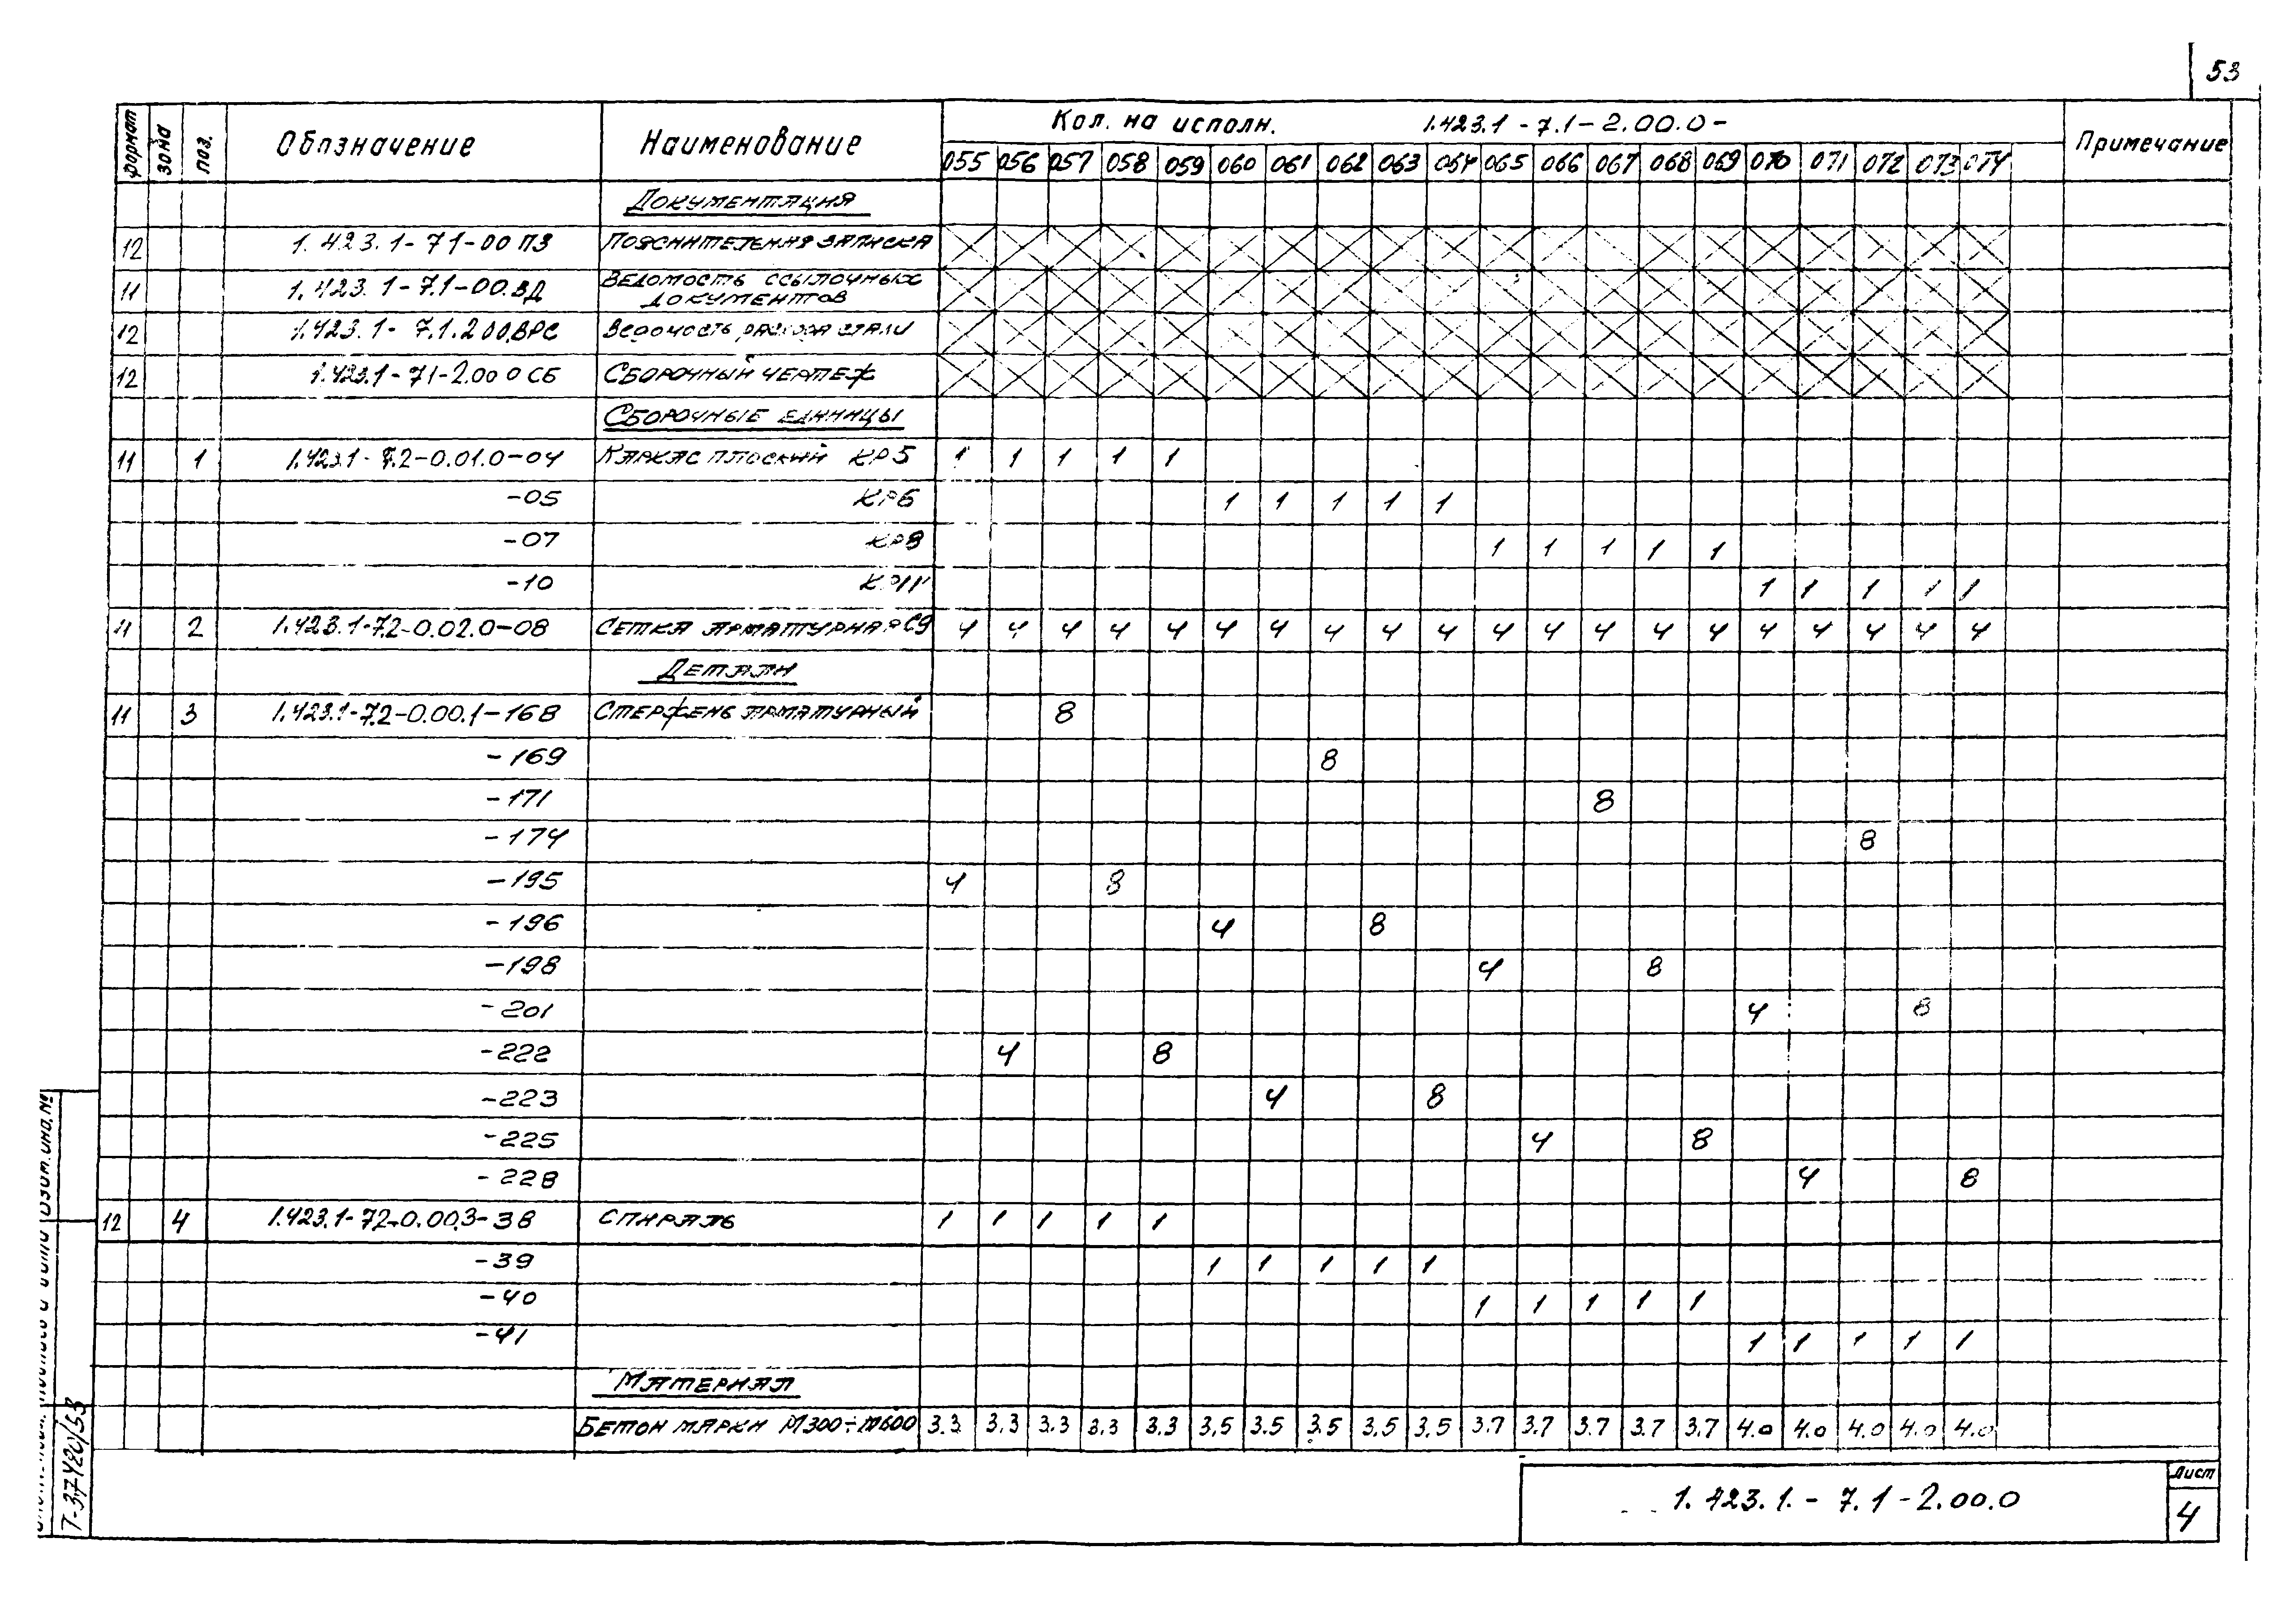 53
формат зона поз. Обозначение Наименование Кол. на исполн. 1.423.1-7.1-2.00.0- Примечание
055 056 057 058 059 060 061 062 063 064 065 066 067 068 069 070 071 072 073 074
Документация
12 1.423.1-7.1-00 ПЗ Пояснительная записка
11 1.423.1-7.1-00.ВД Ведомость ссылочных
документов
12 1.423.1-7.1.2 00.ВРС Ведомость расхода стали
12 1.423.1-7.1-2.00 0 СБ Сборочный чертеж
Сборочные единицы
11 1 1.423.1-7.2-0.01.0-04 Каркас плоский КР5 1 1 1 1 1
-05 КР6 1 1 1 1 1
-07 КР8 1 1 1 1 1
-10 КР11 1 1 1 1 1
11 2 1.423.1-7.2-0.02.0-08 Сетка арматурная С9 4 4 4 4 4 4 4 4 4 4 4 4 4 4 4 4 4 4 4 4
Детали
11 3 1.423.1-7.2-0.00.1-168 Стержень арматурный 8
-169 8
-171 8
-174 8
-195 4 8
-196 4 8
-198 4 8
-201 4 8
-222 4 8
-223 4 8
-225 4 8
-228 4 8
12 4 1.423.1-7.2-0.00.3-38 Спираль 1 1 1 1 1
-39 1 1 1 1 1
-40 1 1 1 1 1
-41 1 1 1 1 1
Материал
Бетон марки М300÷М600 3.3 3.3 3.3 3.3 3.3 3,5 3.5 3.5 3.5 3.5 3.7 3.7 3.7 3.7 3.7 4.0 4.0 4.0 4.0 4.0
1.423.1.-7.1-2.00.0
Лист
4
Взам.инв.№
Т-37420/53